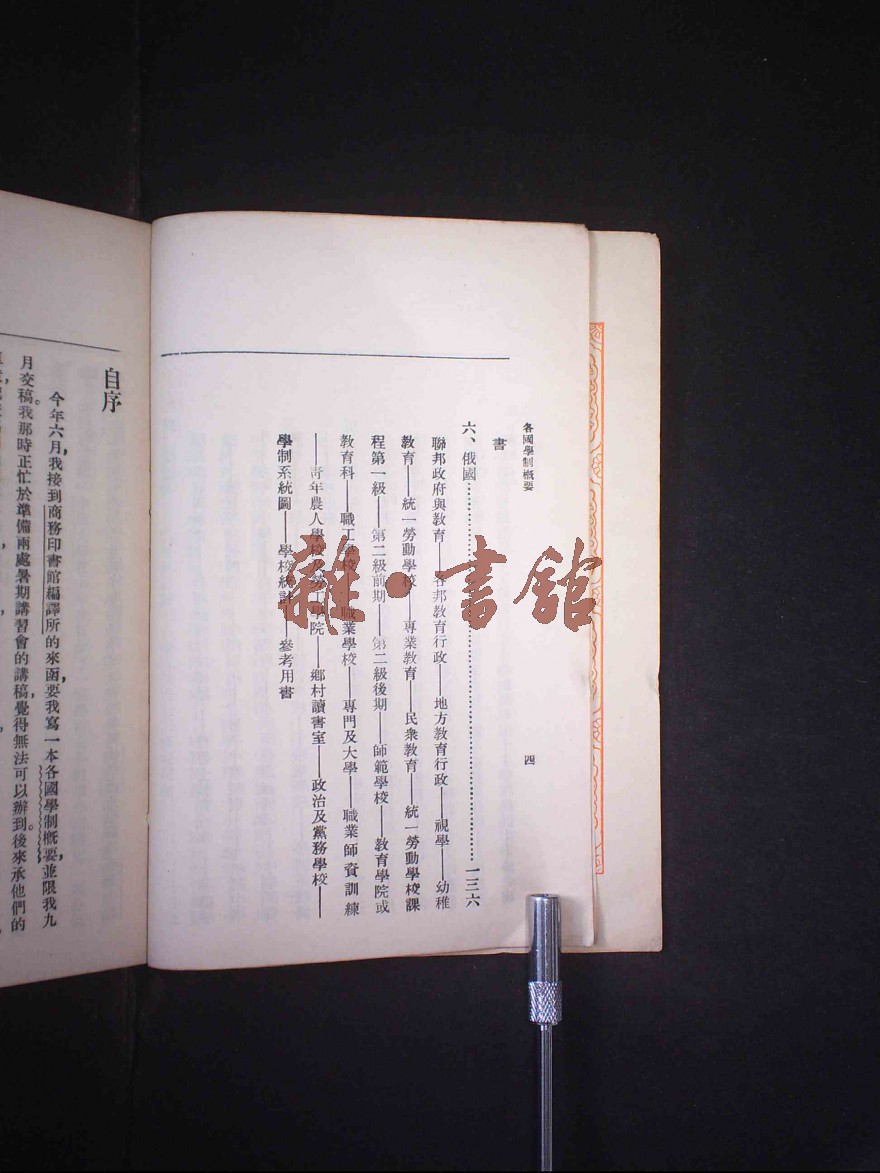 各國學制概要
四
書
六、俄國……一三六
聯邦政府與教育——各邦教育行政——地方教育行政——視學——幼稚
教育——統一勞動學校——專業教育——民衆教育——統一勞動學校課
程第一級——第二級前期——第二級後期——師範學校——教育學院或
教育科——職工學校——職業學校——專門及大學——職業師資訓練
——靑年農人學校及勞工學院——鄉村讀書室——政治及黨務學校——
學制系統圖——學校統計——參考用書
自序
今年六月，我接到商務印書館編譯所的來函，要我寫一本各國學制概要，並限我九
月交稿。我那時正忙於準備兩處暑期講習會的講稿，覺得無法可以辦到。後來承他們的
雜·書館